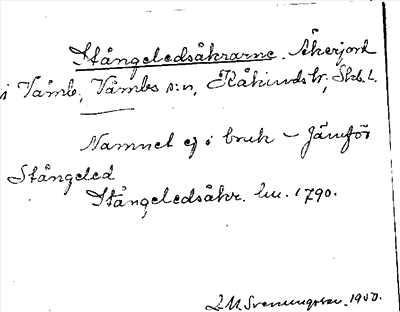 Stångeledsåkrarne. Åkerjord
i Våmb, Våmbs s:n, Kåkinds hr, Skb. l.
Namnet ej i bruk – Jämför
Stångeled
Stångeledsåkr. lm. 1790.
Svenungsson. 1950.